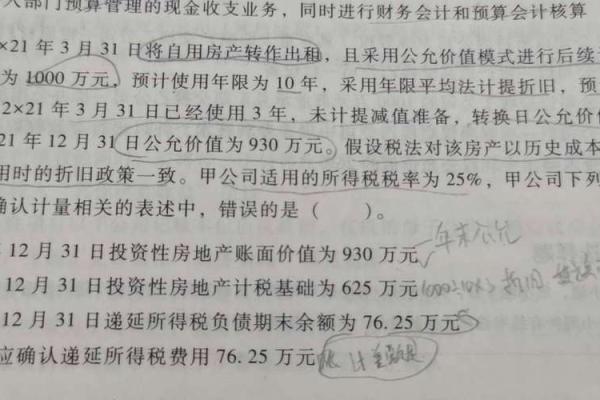 人部门预算管理的现金收支业务，同时进行财务会计和预算会计核算
×21年3月31日将自用房产转作出租，且采用公允价值模式进行后续
为1000万元，预计使用年限为10年，采用年限平均法计提折旧，预
2×21年3月31日已经使用3年，未计提减值准备，转换日公允价值
21年12月31日公允价值为930万元。假设税法对该房产以历史成本
用时的折旧政策一致。甲公司适用的所得税税率为25%，甲公司下列
确认计量相关的表述中，错误的是（ ）。
12月31日投资性房地产账面价值为930万元 年末公允
12月31日投资性房地产计税基础为625万元 折旧
12月31日递延所得税负债期末余额为76.25万元
应确认递延所得税费用76.25万元